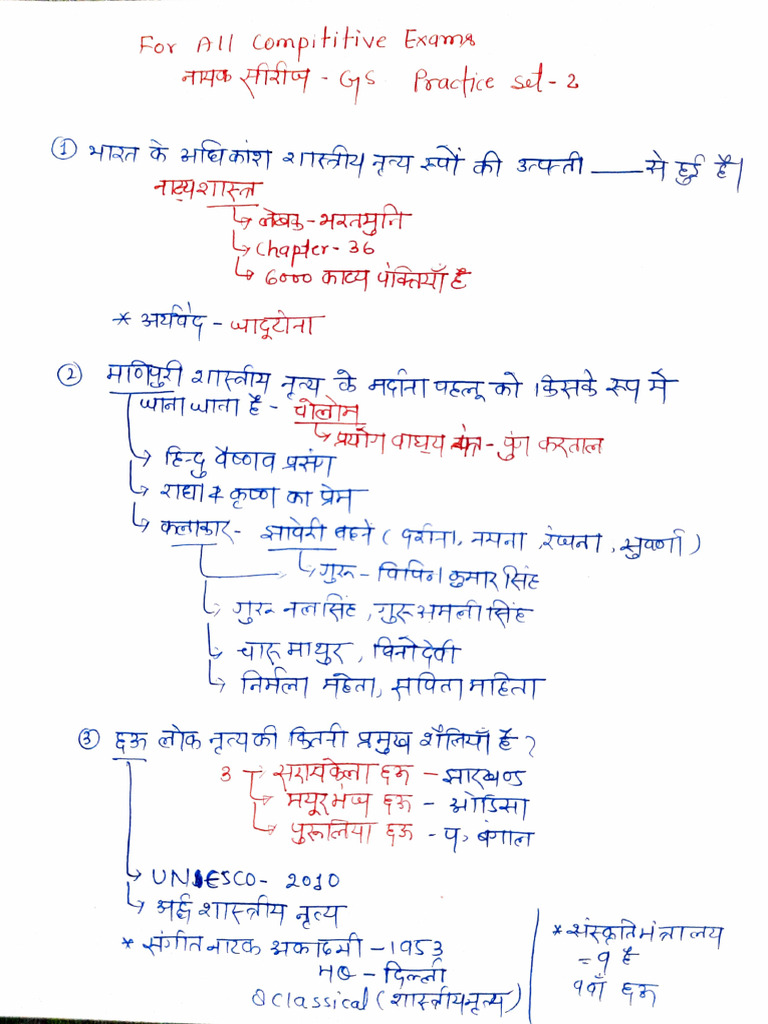 For All Compititive Exams
नामक सीरीज - GS Practice Set - 2
① भारत के अधिकांश शास्त्रीय नृत्य रूपों की उत्पती ——— से हुई है।
नाट्यशास्त्र
↳ लेखक - भरतमुनि
↳ Chapter - 36
↳ 6000 काव्य पंक्तियाँ है
* अर्थवेद - जादूटोना
② मणिपुरी शास्त्रीय नृत्य के मर्दाना पहलू को किसके रूप में
जाना जाता है - चोलोम
↳ प्रयोग वाघ्य यंत्र - पुंग करताल
↳ हिन्दु वैष्णव प्रसंग
↳ राधा व कृष्ण का प्रेम
↳ कलाकार - झावेरी बहने ( दर्शना, नयना, रंजना, सुवर्णा )
↳ गुरु - विपिन कुमार सिंह
↳ गुरु नलसिंह, गुरु अमली सिंह
↳ चारू माथुर, विनोदेवी
↳ निर्मला मेहता, सविता महिता
③ छऊ लोक नृत्य की कितनी प्रमुख शैलियाँ है ?
3 → सरायकेला छऊ - झारखण्ड
↳ मयूरभंज छऊ - ओडिसा
↳ पुरूलिया छऊ - प. बंगाल
↳ UNESCO - 2010
↳ अर्द्ध शास्त्रीय नृत्य
* संगीत नाटक अकादमी - 1953
HQ - दिल्ली
8 Classical ( शास्त्रीय नृत्य )
* संस्कृति मंत्रालय
= 9 है
9वाँ छऊ